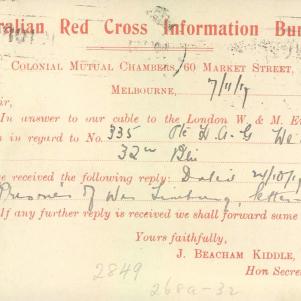 ralian Red Cross Information Bu
Colonial Mutual Chambers, 60 Market Street,
Melbourne, 7/11/17
ir,
In answer to our cable to the London W. & M. E
n in regard to No. 335 Pte H. A. G We
32nd Btn
e received the following reply: Dated 24/10/17
Prisoner of War Limburg, letter
If any further reply is received we shall forward same
Yours faithfully,
J. Beacham Kiddle,
Hon Secre
2849
268a-32